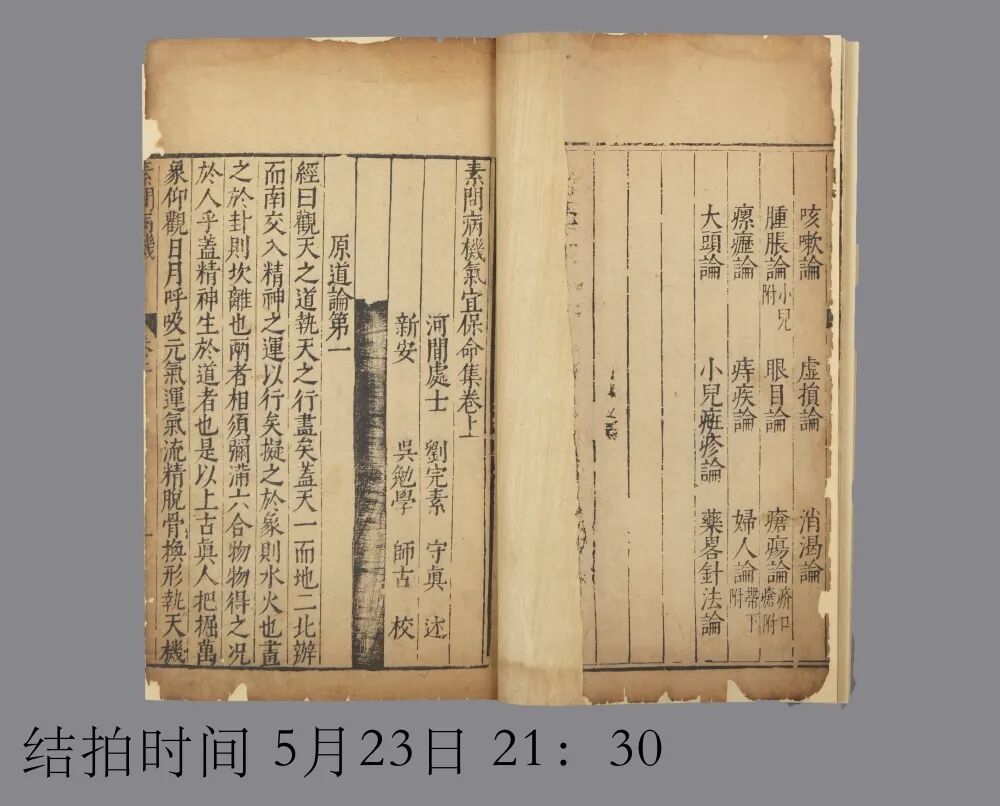 咳嗽論 虛損論 消渴論
腫脹論小兒附 眼目論 瘡瘍論疥瘡口附
瘰癧論 痔疾論 婦人論帶下附
大頭論 小兒斑疹論 藥畧針法論
素問病機氣宜保命集卷上
河間處士 劉完素 守眞 述
新安 吳勉學 師古 校
原道論第一
經曰觀天之道執天之行盡矣蓋天一而地二北辦
而南交入精神之運以行矣擬之於象則水火也畫
之於卦則坎離也兩者相須彌滿六合物物得之况
於人乎蓋精神生於道者也是以上古眞人把握萬
象仰觀日月呼吸元氣運氣流精脫骨換形執天機
素問病機
结拍时间 5月23日 21：30